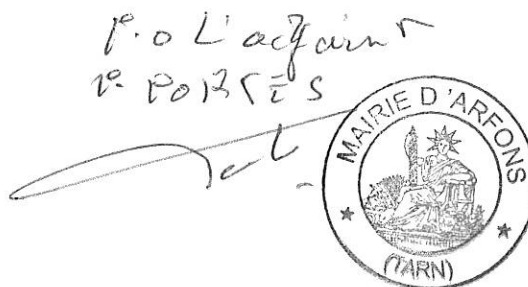 P.O L'adjoint
P. PORTES
MAIRIE D'ARFONS
(TARN)